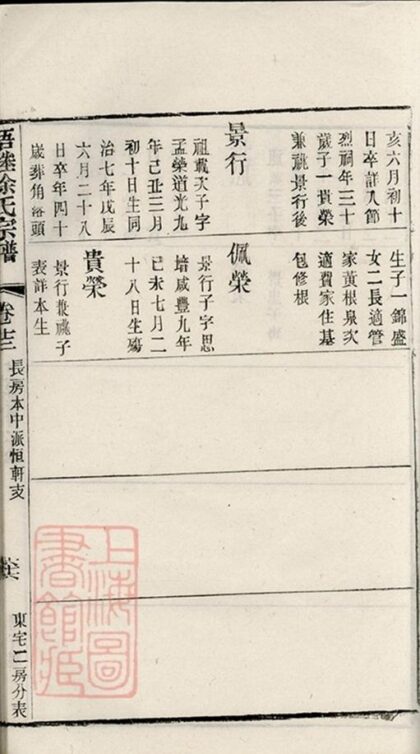 亥六月初十
日卒詳入節
烈祠年三十
歲子一貴榮
兼祧景行後
景行
祖載次子字
孟榮道光九
年己丑三月
初十日生同
治七年戊辰
六月二十八
日卒年四十
歲葬角窰頭
生子一錦盛
女二長適管
家黃根泉次
適費家住基
包修根
佩榮
景行子字思
培咸豐九年
己未七月二
十八日生殤
貴榮
景行兼祧子
表詳本生
梧塍徐氏宗譜
卷
長房本中派恒軒支
東宅二房分表
上海圖
書館藏